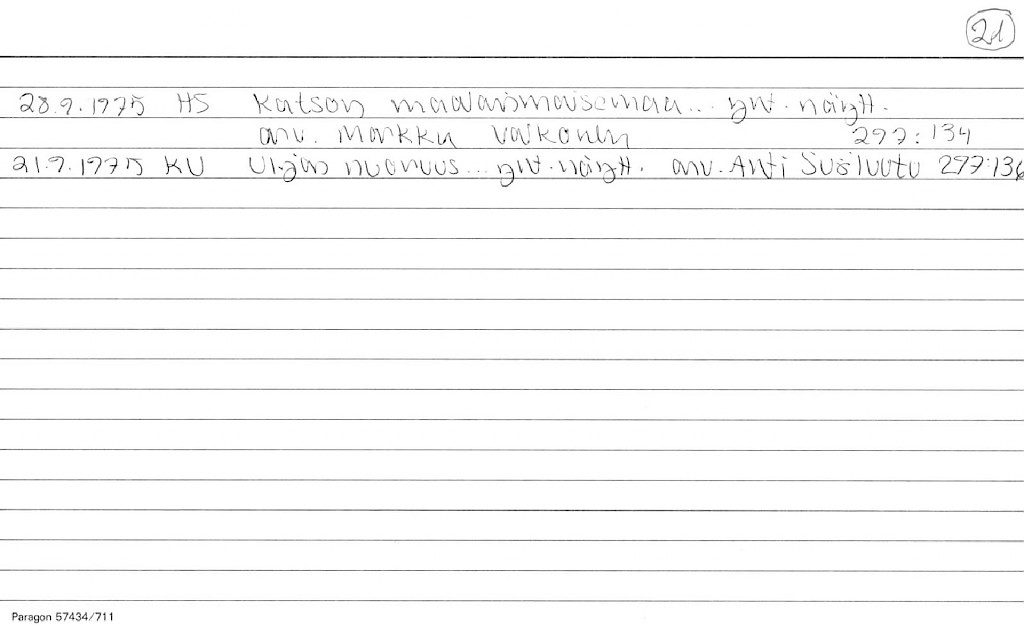 21
28.9.1975 HS Katson maalaismaisemaa... yht. näytt.
arv. Markku Valkonen 297:134
21.9.1975 KU Uljas nuoruus... yht. näytt. arv. Antti 297:136
Paragon 57434/711